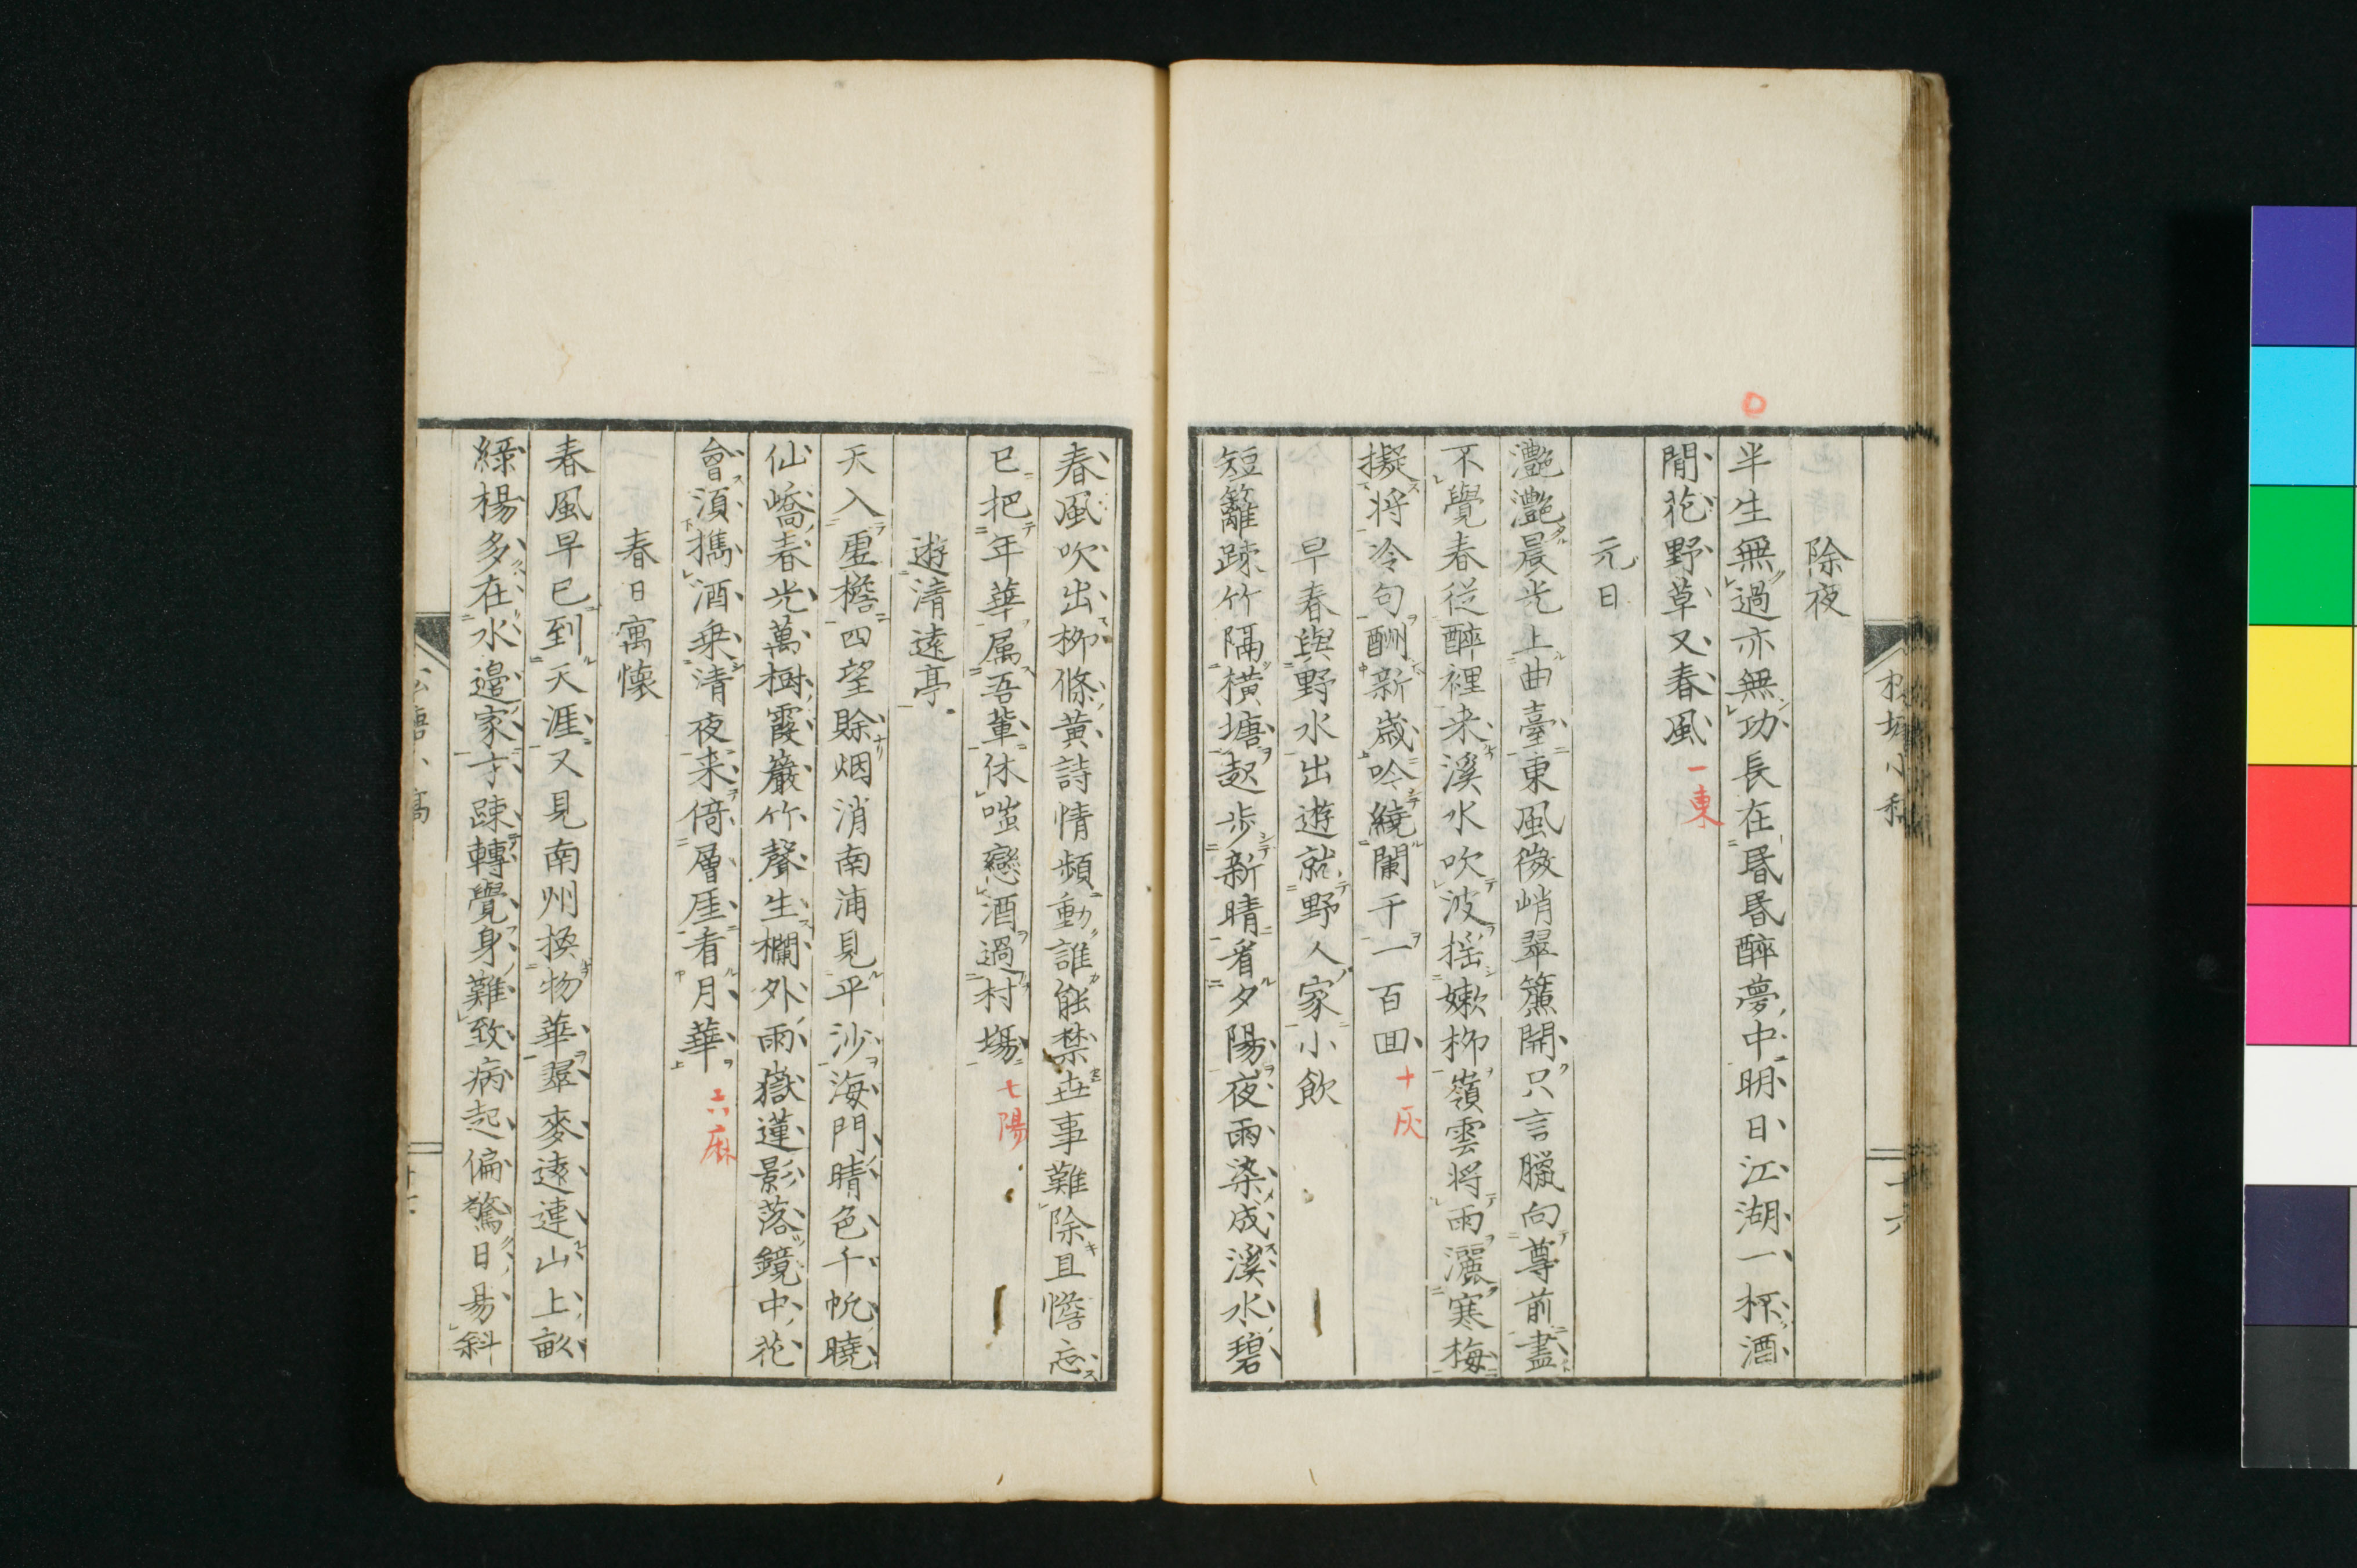 除夜
半生無過亦無功長在昬昬醉夢中明日江湖一杯酒
閒花野草又春風 一東
元日
灔灔晨光上曲臺東風微峭翠簾開只言臘向尊前盡
不覺春從醉裡来溪水吹波揺嫩柳嶺雲将雨灑寒梅
擬将冷句酬新歳吟繞闌干一百回 十灰
早春與野水出遊就野人家小飲
短籬踈竹隔横塘起歩新晴看夕陽夜雨染成溪水碧
十六
春風吹出柳條黄詩情頻動誰能禁世事難除且憺忘
已把年華属吾輩休嗤戀酒過村塲 七陽
遊清遠亭
天入虚檐四望賖烟消南浦見平沙海門晴色千帆曉
仙嶠春光萬樹霞巖竹聲生欄外雨嶽蓮影落鏡中花
會須携酒乗清夜来倚層厓看月華 六麻
春日寓懐
春風早已到天涯又見南州換物華翠麥遠連山上畝
緑楊多在水邉家才踈轉覺身難致病起偏驚日昜斜